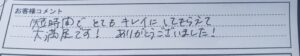 お客様コメント
短時間でとてもキレイにしてもらえて
大満足です! ありがとうございました!